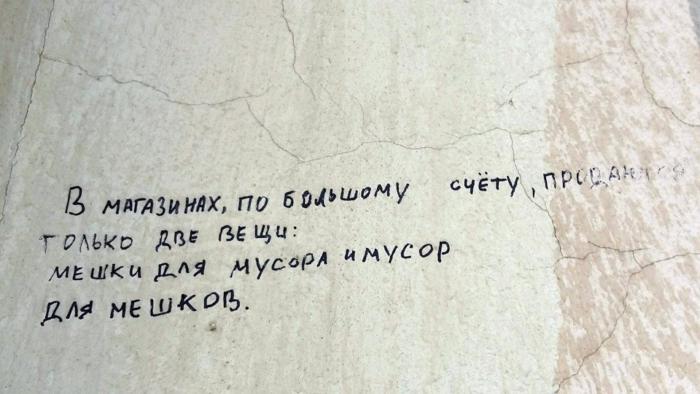 В МАГАЗИНАХ, ПО БОЛЬШОМУ СЧЁТУ, ПРОДАЮТСЯ
ТОЛЬКО ДВЕ ВЕЩИ:
МЕШКИ ДЛЯ МУСОРА И МУСОР
ДЛЯ МЕШКОВ.